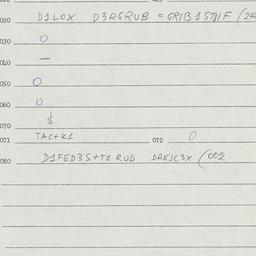 020 D1LOX D3RGRUB = GRIB15TJIF (24
030 0
040 —
050 0
060 0
070 $
071 TAC+K1 072 0
080 D1FED3S+T1 RUD DREJC3X (002